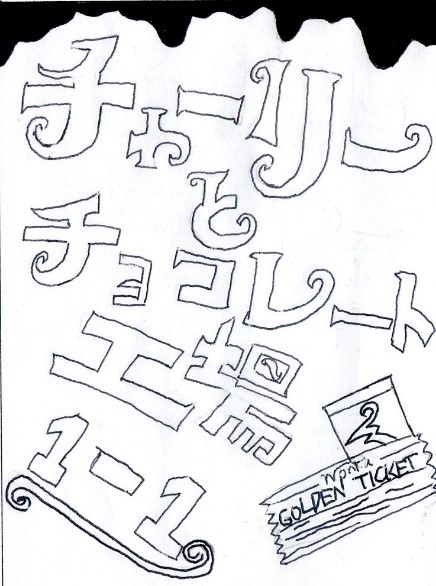 チャーリー
と
チョコレート
工場
1-1
2
GOLDEN TICKET